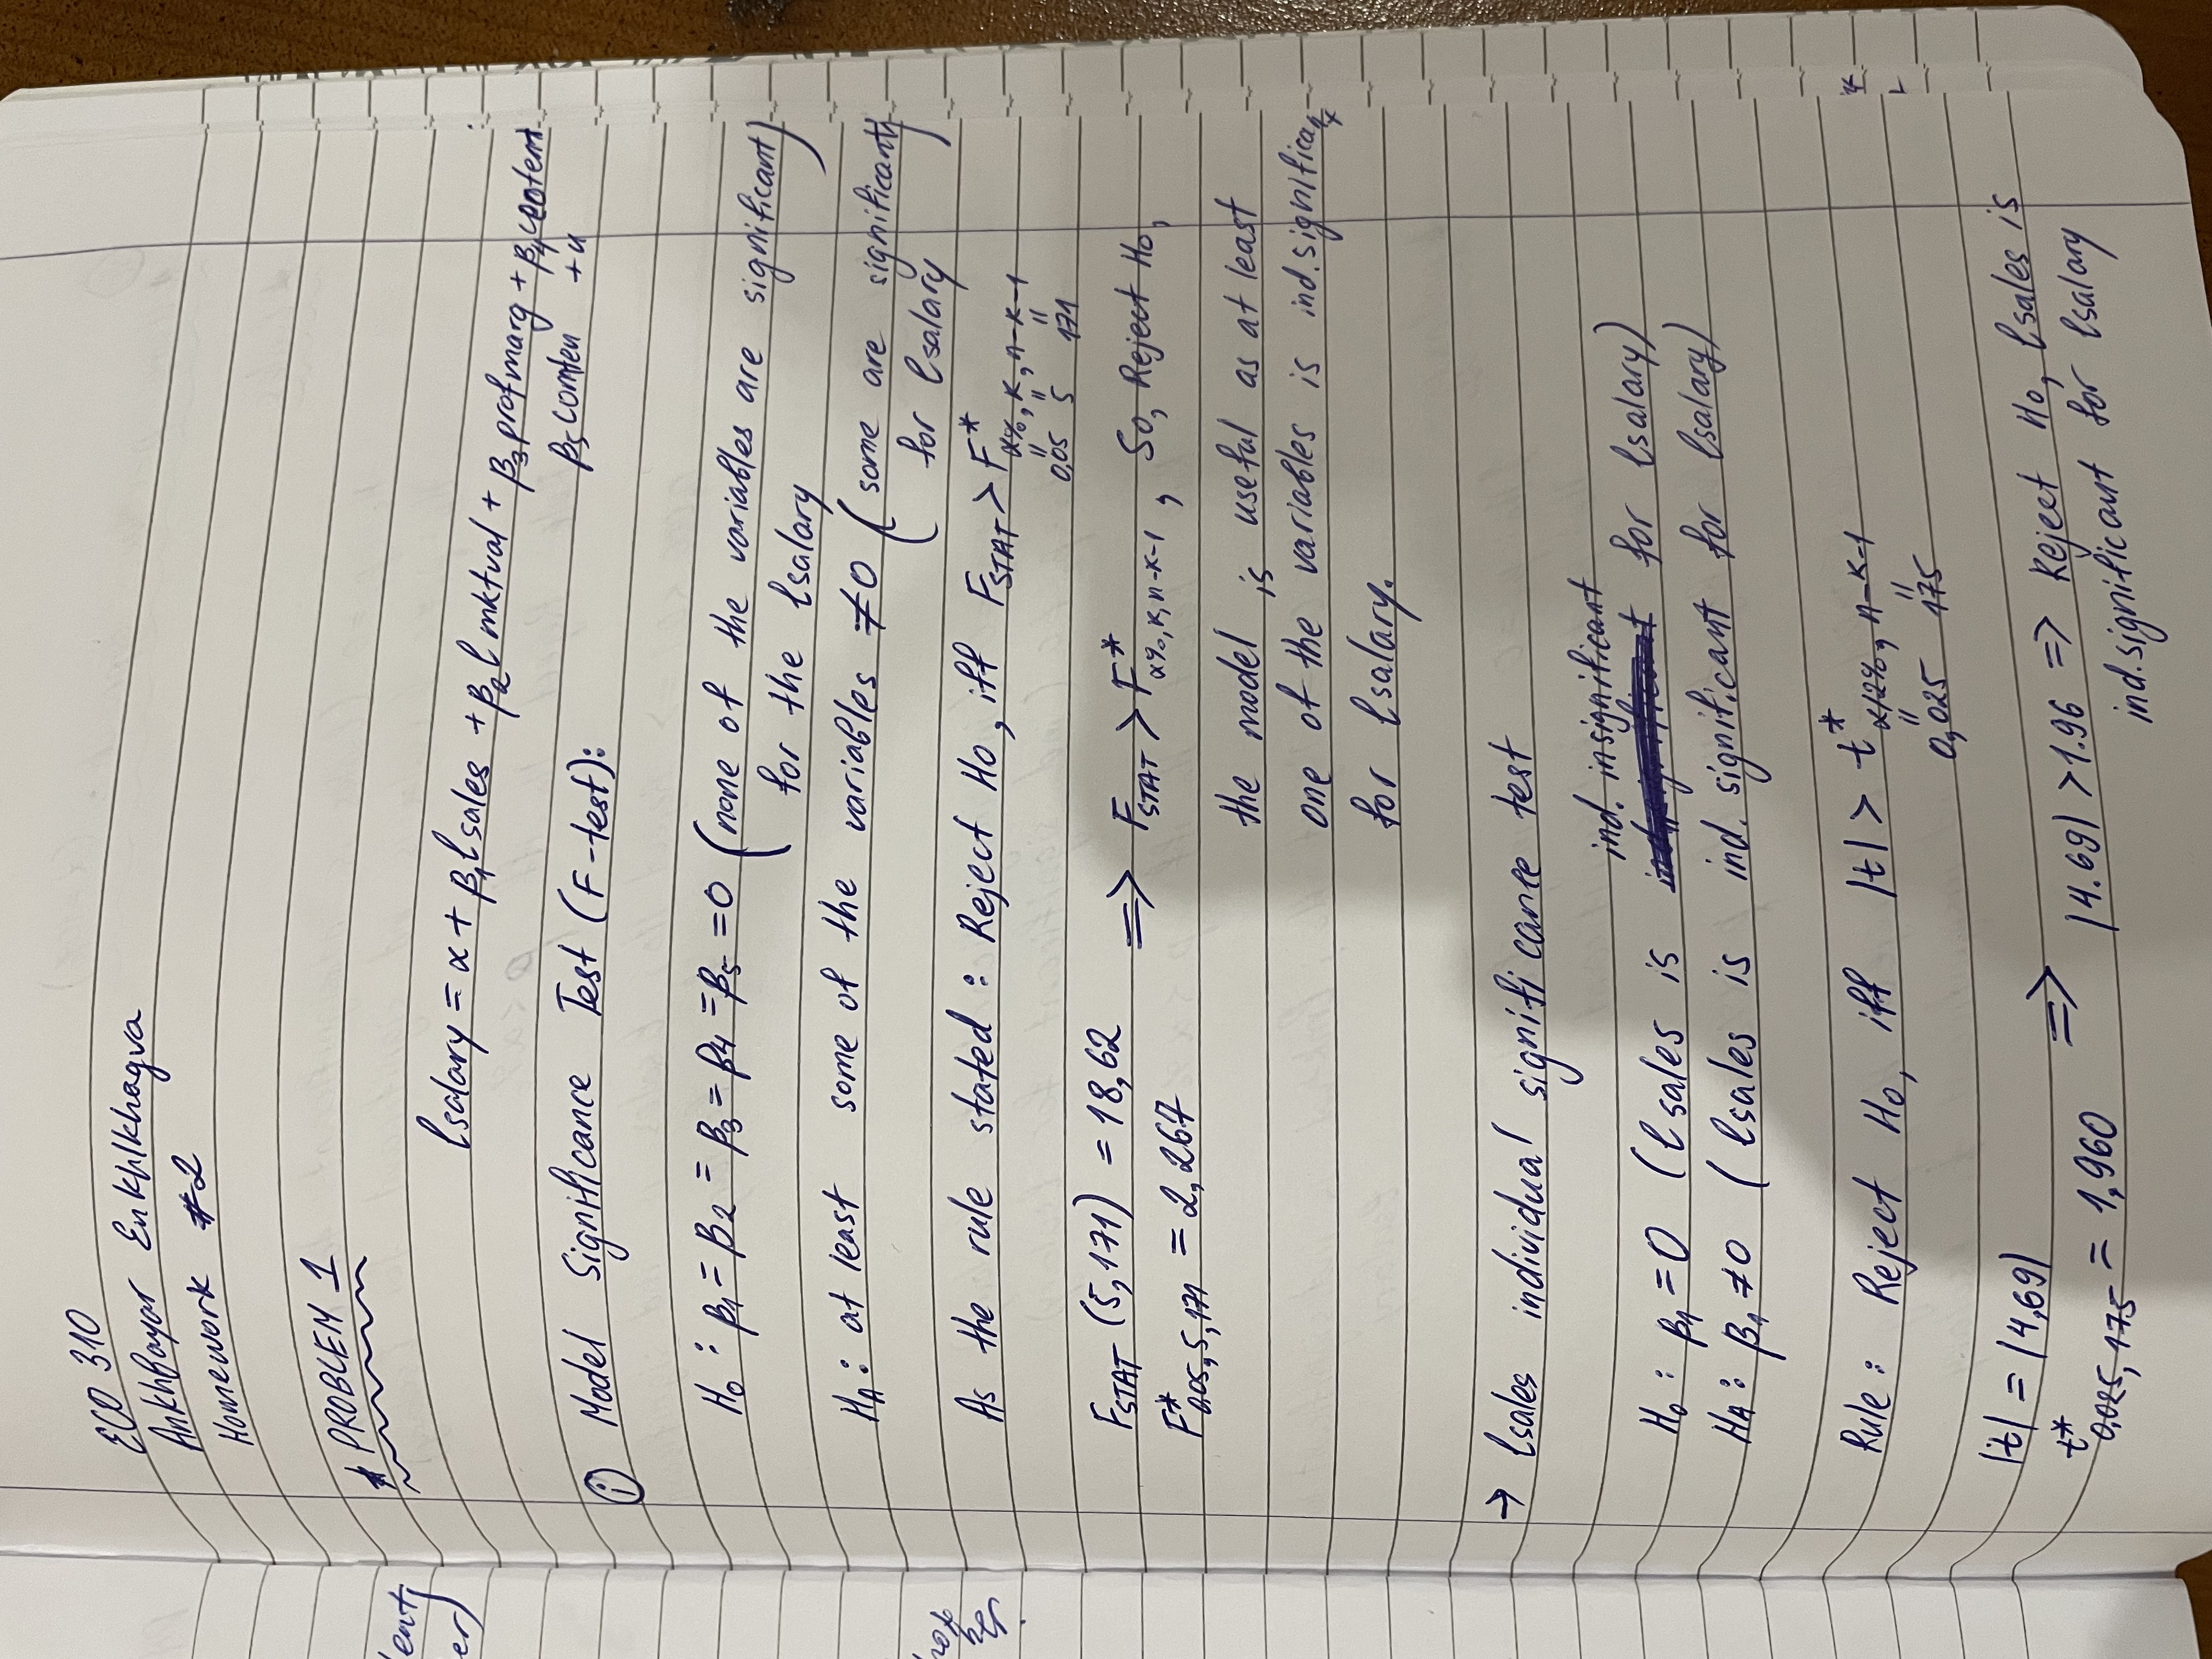 ECO 310
Ankhbayar Enkhlkhagva
Homework #2
* PROBLEM 1
lsalary = α + β₁lsales + β₂lmktval + β₃profmarg + β₄ceoten+
β₅comten + u
ⓘ Model Significance Test (F-test):
H₀: β₁ = β₂ = β₃ = β₄ = β₅ = 0 (none of the variables are significant)
for the lsalary
H_A: at least some of the variables ≠ 0 (some are significant)
for lsalary
As the rule stated: Reject H₀, iff F_STAT > F*_α%, K, n-K-1
0,05 5 171
F_STAT (5,171) = 18,62 ⇒ F_STAT > F*_α%, K, n-K-1, So, Reject H₀,
F*_0.05, 5, 171 = 2,267
the model is useful as at least
one of the variables is ind. significant
for lsalary.
→ lsales individual significance test
ind. insignificant
H₀: β₁ = 0 (lsales is for lsalary)
H_A: β₁ ≠ 0 (lsales is ind. significant for lsalary)
Rule: Reject H₀, iff |t| > t*_α/2%, n-K-1
0,025 175
|t| = |4,69|
t*_0.025, 175 = 1,960 ⇒ |4.69| > 1.96 ⇒ Reject H₀, lsales is
ind. significant for lsalary
ent
er)
not
her.